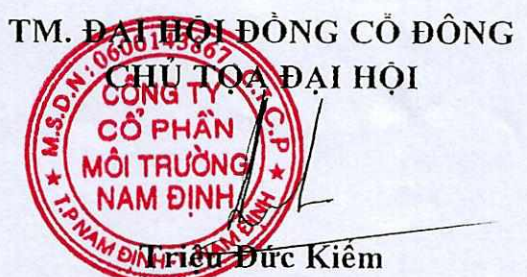 TM. ĐẠI HỘI ĐỒNG CỔ ĐÔNG
CHỦ TỌA ĐẠI HỘI
M.S.D.N: 0600145867 C.T.C.P
CÔNG TY
CỔ PHẦN
MÔI TRƯỜNG
NAM ĐỊNH
T.P NAM ĐỊNH - T. NAM ĐỊNH
Triệu Đức Kiểm